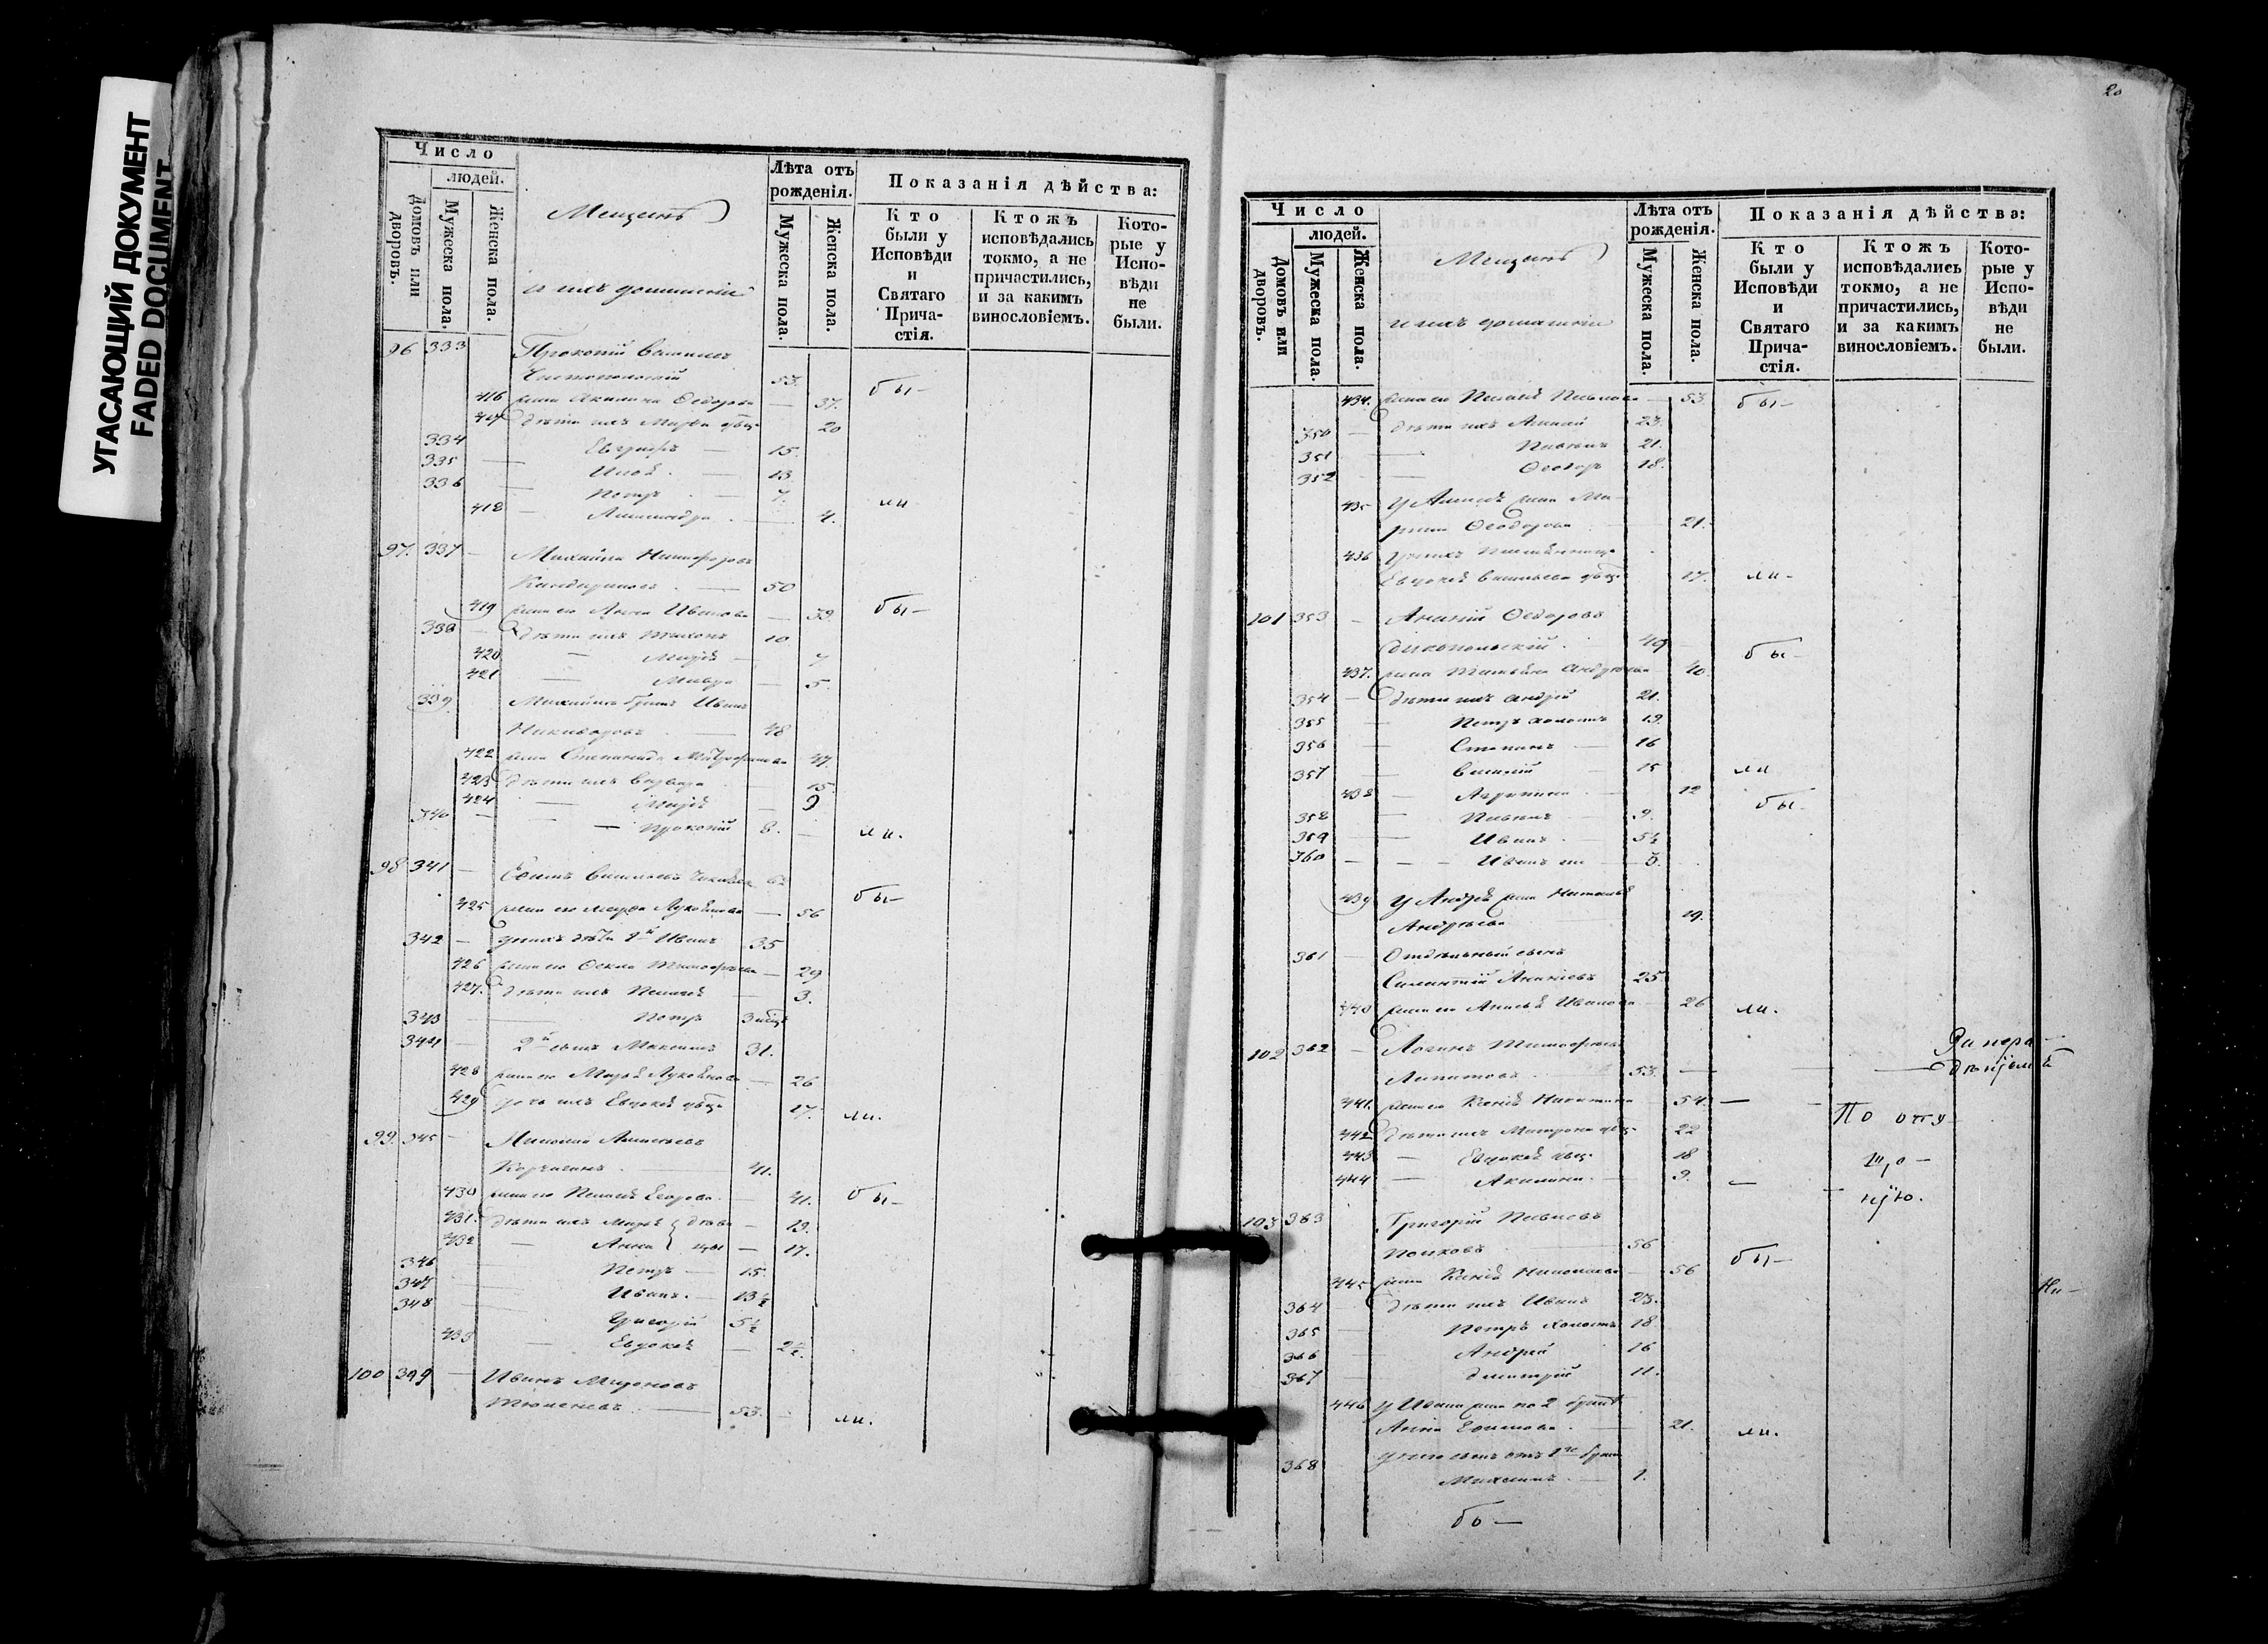 УГАСАЮЩИЙ ДОКУМЕНТ
FADED DOCUMENT
Число
людей.
Домовъ или дворовъ.
Мужеска пола.
Женска пола.
Мещанъ
и ихъ домашніи
Лѣта отъ рожденія.
Мужеска пола.
Женска пола.
Показанія дѣйства:
Кто были у Исповѣди и Святаго Причастія.
Ктожъ исповѣдались токмо, а не причастились, и за какимъ винословіемъ.
Которые у Исповѣди не были.
96 333 Прокопій
53. бы-
416 жена Акилина Федорова 37.
417 дѣти ихъ Марѳа 20
334 Евграфъ 15.
335 13.
336 Петръ 7. ли
418 Александра 4.
97. 337 Михайла Никифоровъ
50
419 жена его Анна Иванова 39. бы-
338 дѣти ихъ Тихонъ 10.
420 Марія 7.
421 Мавра 5.
339 Михайлы братъ Иванъ
Никифоровъ 48
422 жена Степанида Митрофанова 47.
423 дѣти ихъ Варвара 15.
424 Марія 9
340 Прокопій 8. ли.
98 341 Васильевъ
425 жена его Марѳа Лукоянова 56 бы-
342 у нихъ дѣти 1й Иванъ 35
426 жена его Ѳекла Тимоѳеева 29
427. дѣти ихъ Пелагея 3.
343 Петръ 3 мѣс.
344 2й сынъ Максимъ 31.
428 жена его Марья Лукоянова 26
429 дочь ихъ Евдокія 17. ли.
99. 345 Николай Алексѣевъ
Корчагинъ 41.
430 жена его Пелагея Егорова 41. бы-
431. дѣти ихъ Марья 19.
432 Анна 17.
346 Петръ 15.
347 Иванъ. 13½
348 Григорій 5½
433 Евдокія 2½.
100 399 Иванъ Мироновъ
Тюменевъ 53. ли.
20
Число
людей.
Домовъ или дворовъ.
Мужеска пола.
Женска пола.
Мещанъ
и ихъ домашніи
Лѣта отъ рожденія.
Мужеска пола.
Женска пола.
Показанія дѣйства:
Кто были у Исповѣди и Святаго Причастія.
Ктожъ исповѣдались токмо, а не причастились, и за какимъ винословіемъ.
Которые у Исповѣди не были.
434. жена его Пелагея Павлова 53. бы-
350 дѣти ихъ Алексѣй 23.
351 Павелъ 21.
352 Ѳеодоръ 18.
435 у Алексѣя жена Ма-
рина Ѳеодорова 21.
436 у нихъ племянница
Евдокія Васильева 17. ли-
101 353 Ананій Ѳедоровъ
Дикопольскій 49
437. жена Татьяна Андреева 40. бы-
354 дѣти ихъ Андрей 21.
355 Петръ холостъ 19.
356 Степанъ 16
357 Василій 15 ли
438 Агрипина 12 бы-
358 Павелъ 9.
359 Иванъ 5½
360 Иванъ 3.
439 у Андрея жена Наталья
Андреева 19.
361 Отдѣльный сынъ
Силантій Ананіевъ 25
440 жена его Анисья Иванова 26 ли.
102 362 Логинъ Тимоѳеевъ
Липатовъ 53. За нера-
дѣніемъ
441. жена его Ксенія Никитина 54. По отлу-
442 дѣти ихъ Матрона 22
443 Евдокія 18
444 Акилина 9.
103 363 Григорій Павловъ
Поповъ 56 бы-
445 жена Ксенія Николаева 56
364 дѣти ихъ Иванъ 23.
365 Петръ холостъ 18
366 Андрей 16
367 Дмитрій 11.
446 у Ивана жена по 2 браку
Анна Ефимова 21. ли.
368 у него сынъ отъ 1го брака
Михаилъ 1.
бо-